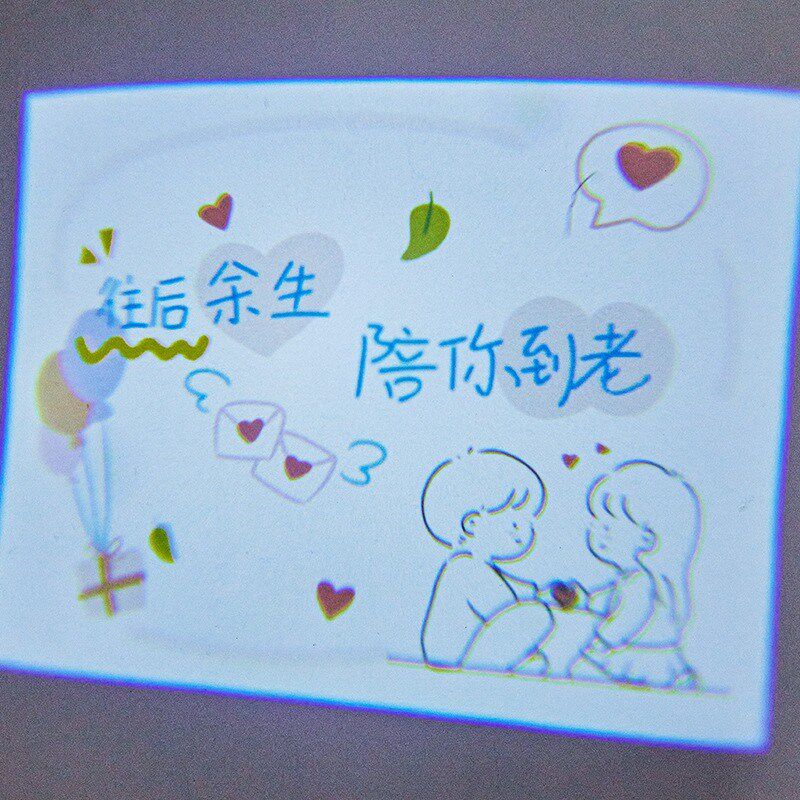 往后余生
陪你到老